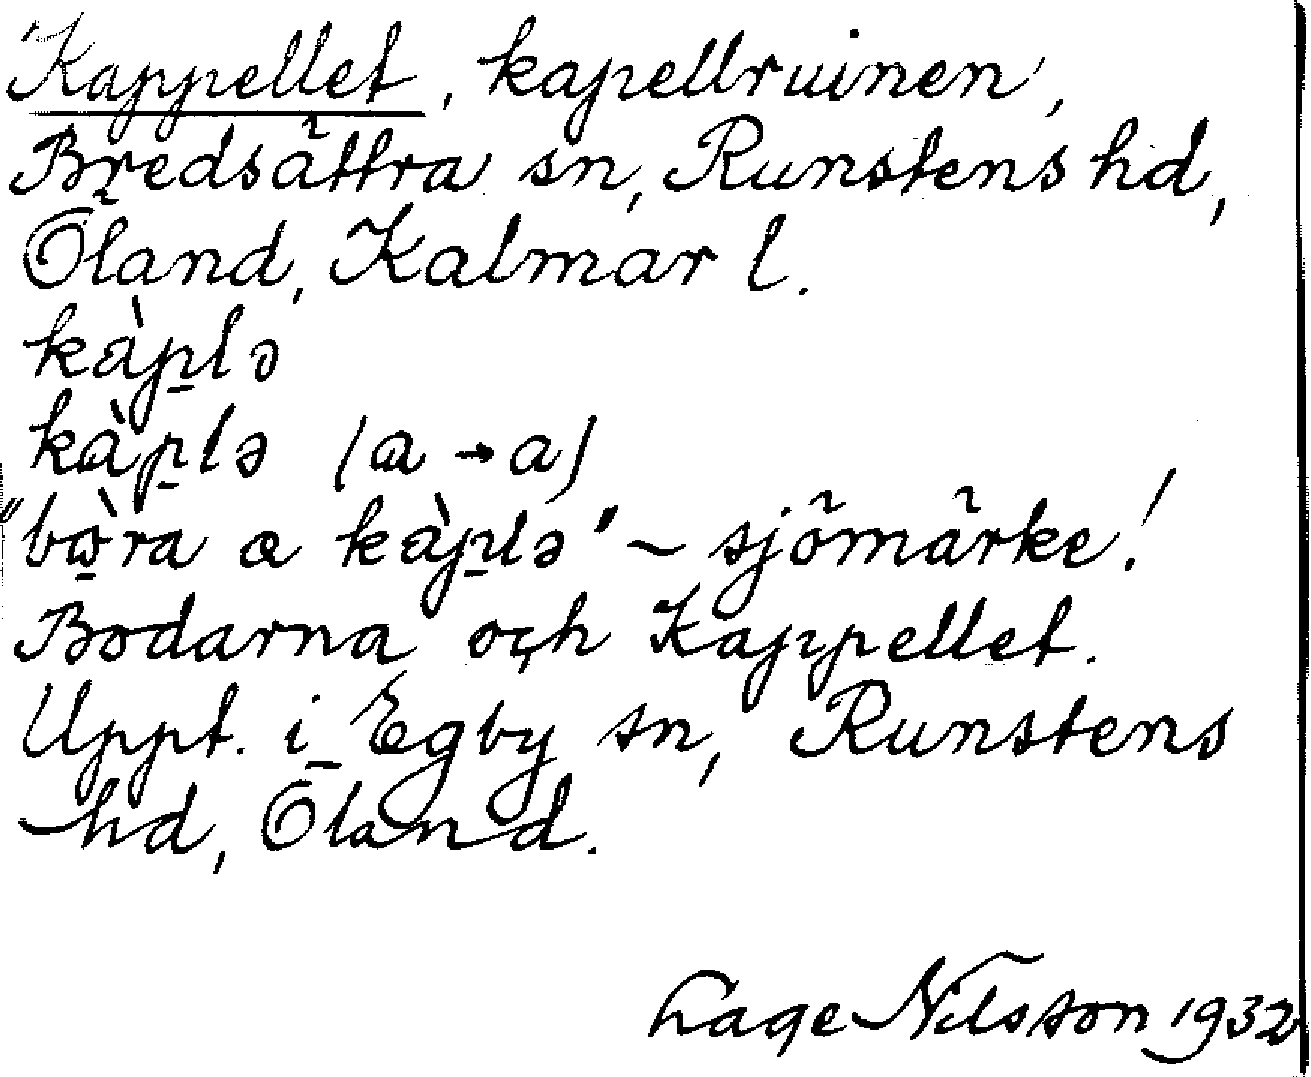 Kappellet, kapellruinen,
Bredsättra sn, Runstens hd,
Öland, Kalmar l.
kàp̱lə
kàp̱lə (a → a)
"bò̱ra a kàp̱lə" ~ sjömärke!
Bodarna och Kappellet.
Uppt. i Egby sn, Runstens
hd, Öland.
Lage Nilsson 1932